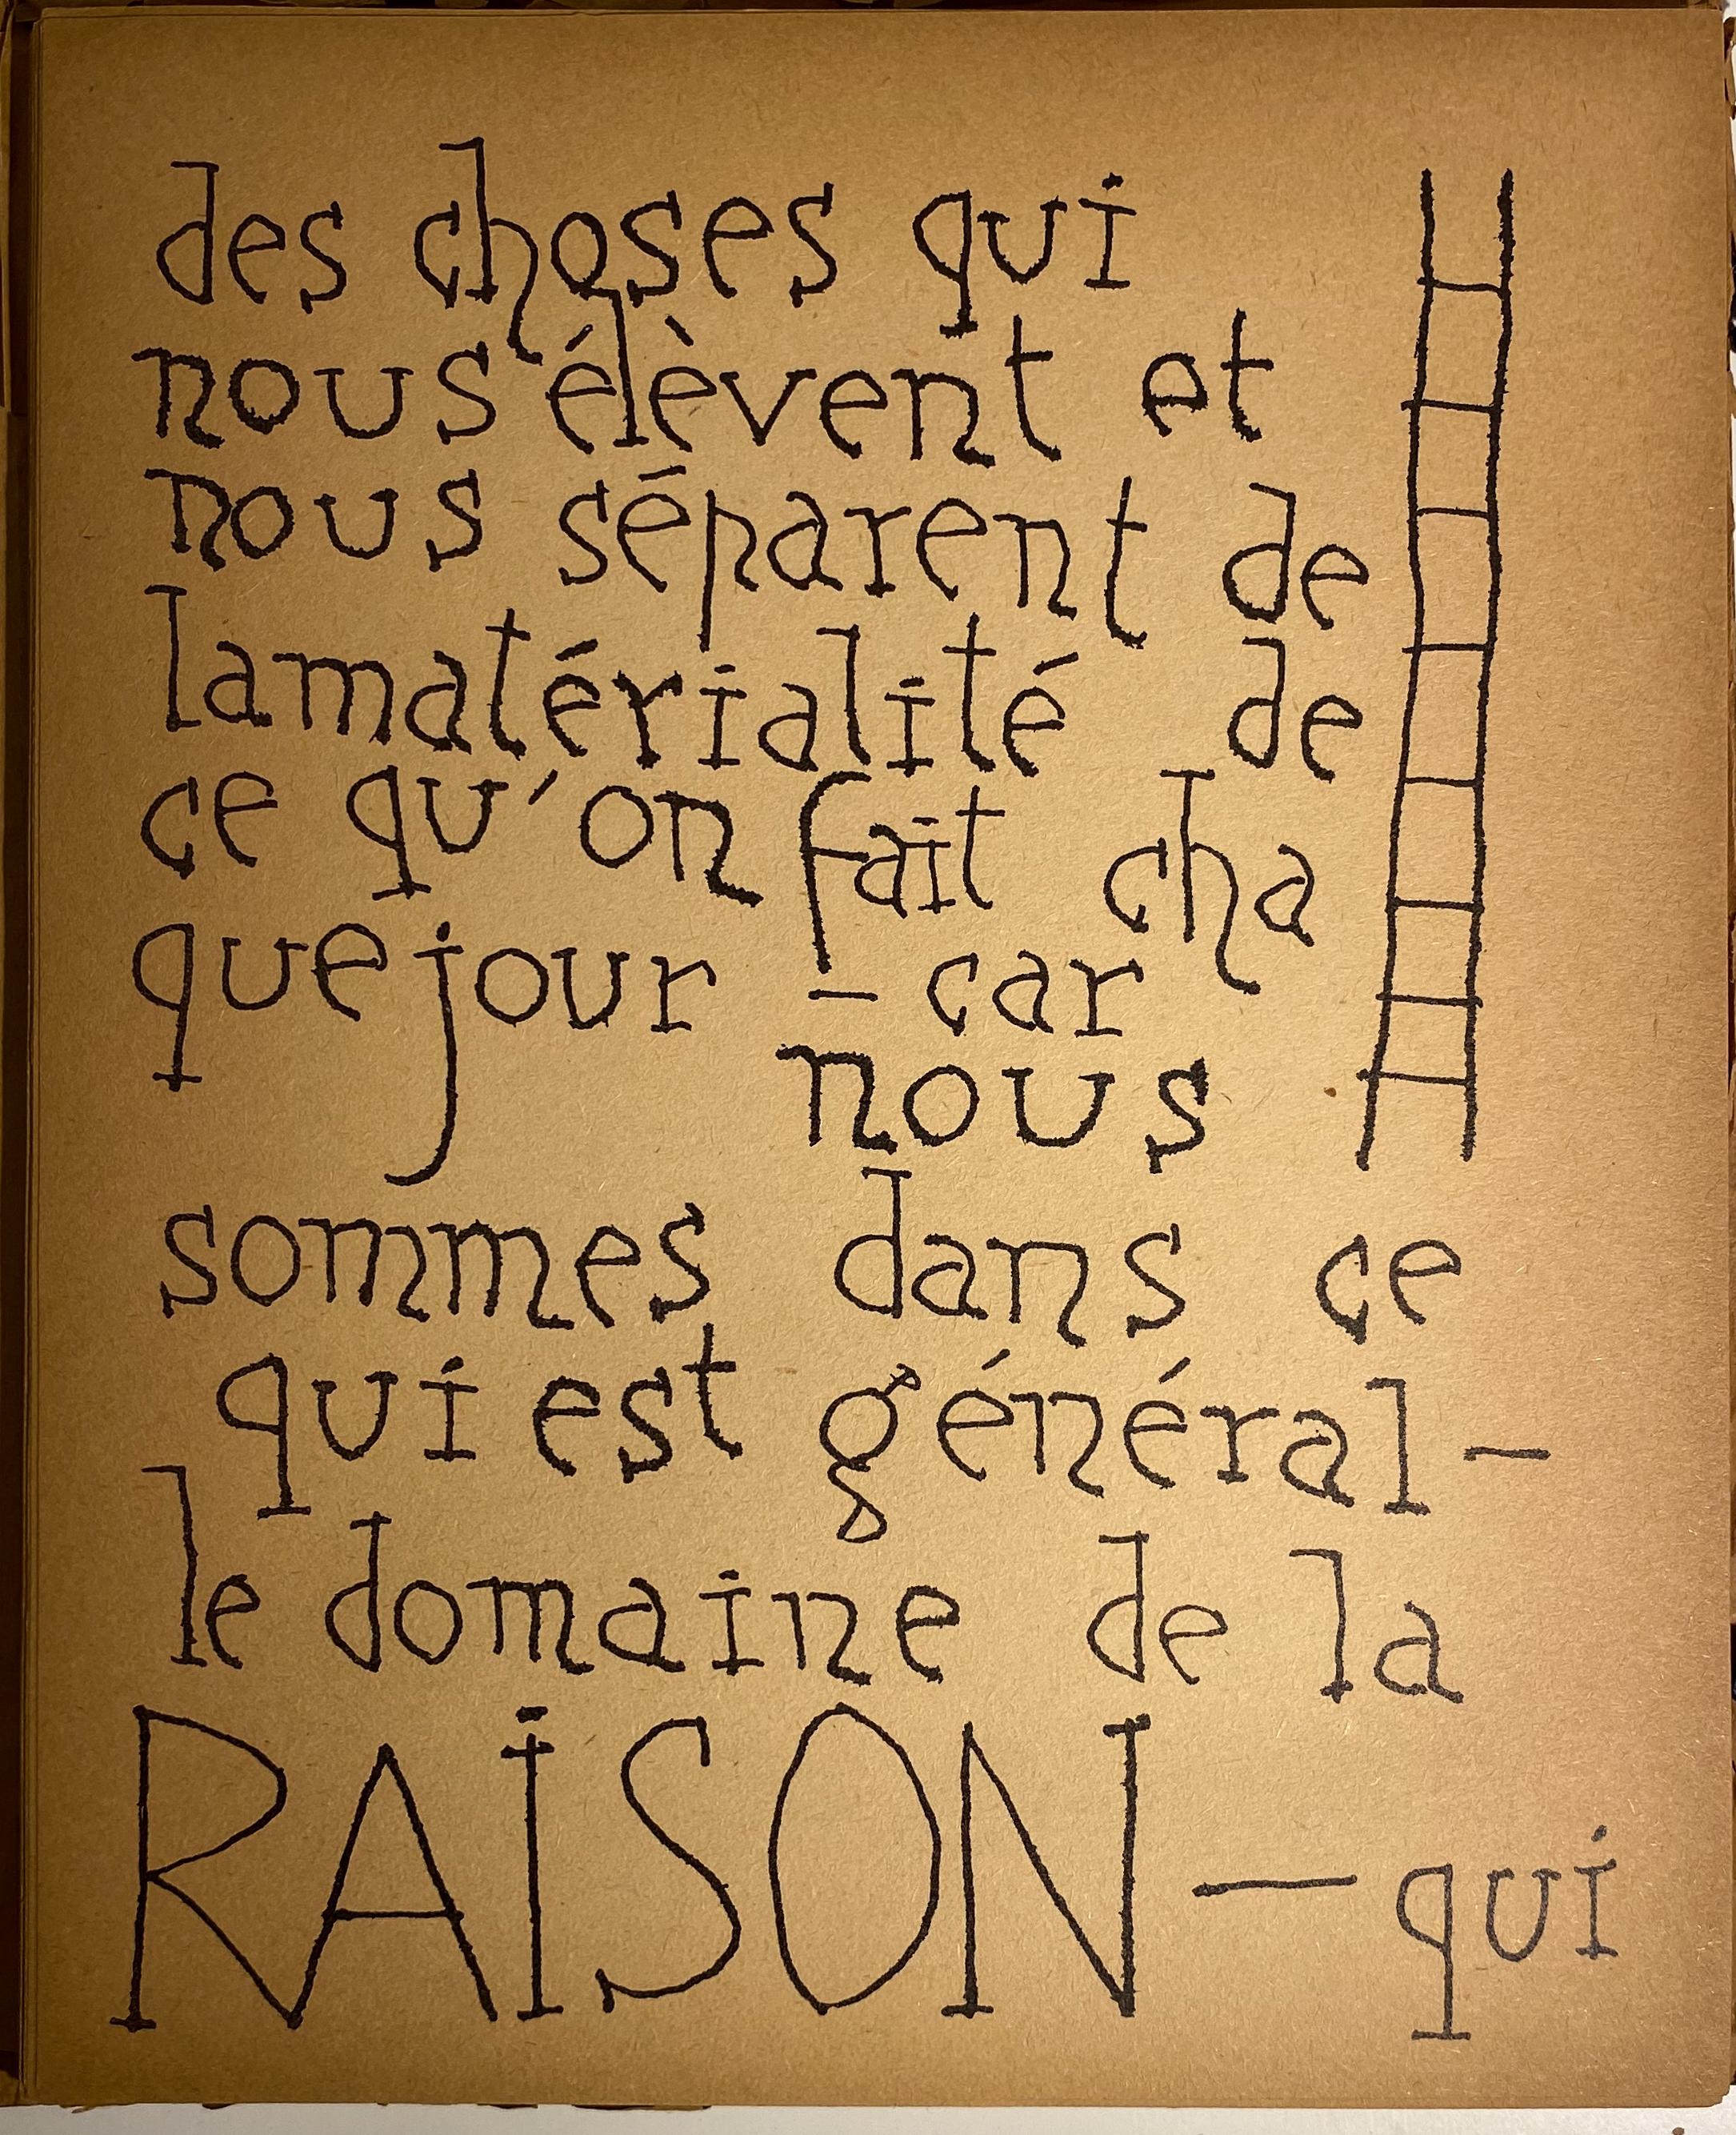 des choses qui
nous élèvent et
nous séparent de
la matérialité de
ce qu'on fait cha
que jour - car
nous
sommes dans ce
qui est général -
le domaine de la
RAİSON - qui